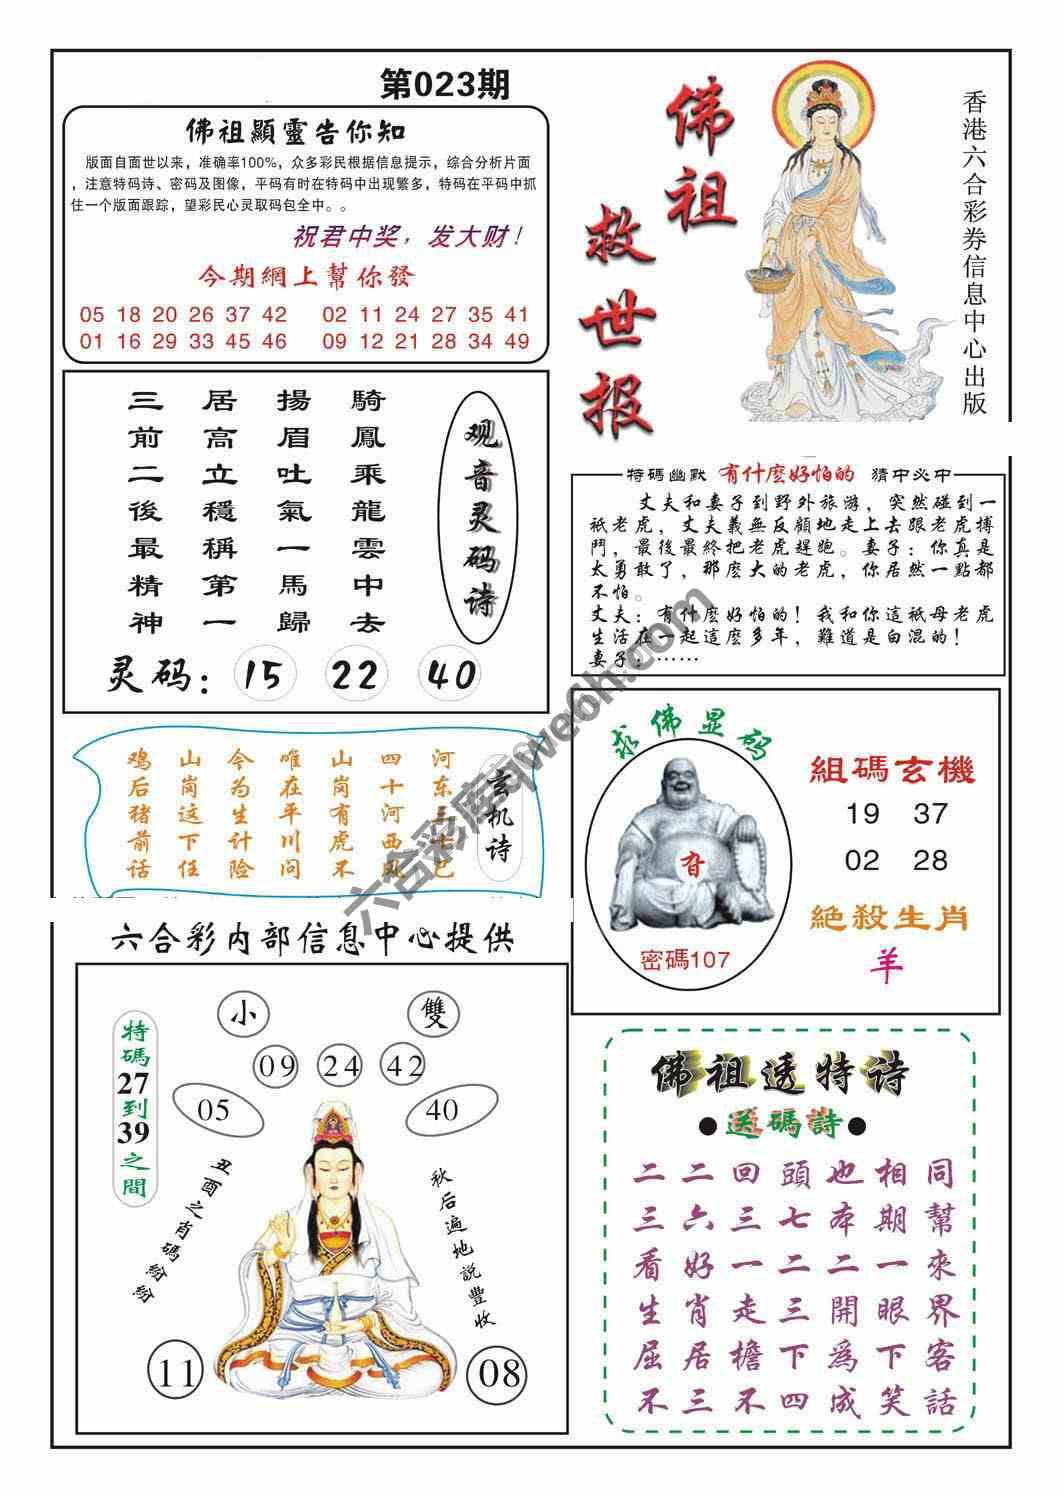 第023期
佛祖顯靈告你知
版面自面世以来，准确率100%，众多彩民根据信息提示，综合分析片面
，注意特码诗、密码及图像，平码有时在特码中出现繁多，特码在平码中抓
住一个版面跟踪，望彩民心灵取码包全中。。
祝君中奖，发大财！
今期網上幫你發
05 18 20 26 37 42 02 11 24 27 35 41
01 16 29 33 45 46 09 12 21 28 34 49
佛祖
救世报
香港六合彩券信息中心出版
观音灵码诗
騎鳳乘龍雲中去
揚眉吐氣一馬歸
居高立穩稱第一
三前二後最精神
灵码：15 22 40
特碼幽默 有什麽好怕的 猜中必中
丈夫和妻子到野外旅游，突然碰到一
祇老虎，丈夫義無反顧地走上去跟老虎搏
鬥，最後最終把老虎趕跑。妻子：你真是
太勇敢了，那麽大的老虎，你居然一點都
不怕。
丈夫：有什麽好怕的！我和你這祇母老虎
生活在一起這麽多年，難道是白混的！
妻子：……
玄机诗
河东三十已
四十河西风
山岗有虎不
唯在平川问
今为生计险
山岗这下任
鸡后猪前话
求佛显码
密碼107
組碼玄機
19 37
02 28
絕殺生肖
羊
六合彩内部信息中心提供
特碼27到39之間
小 雙
09 24 42
05 40
丑酉之肖碼紛紛
秋后遍地説豐收
11 08
佛祖透特诗
●送碼詩●
二二回頭也相同
三六三七本期幫
看好一二二一來
生肖走三開眼界
屈居檐下爲下客
不三不四成笑話
六合彩库qwe6h.com